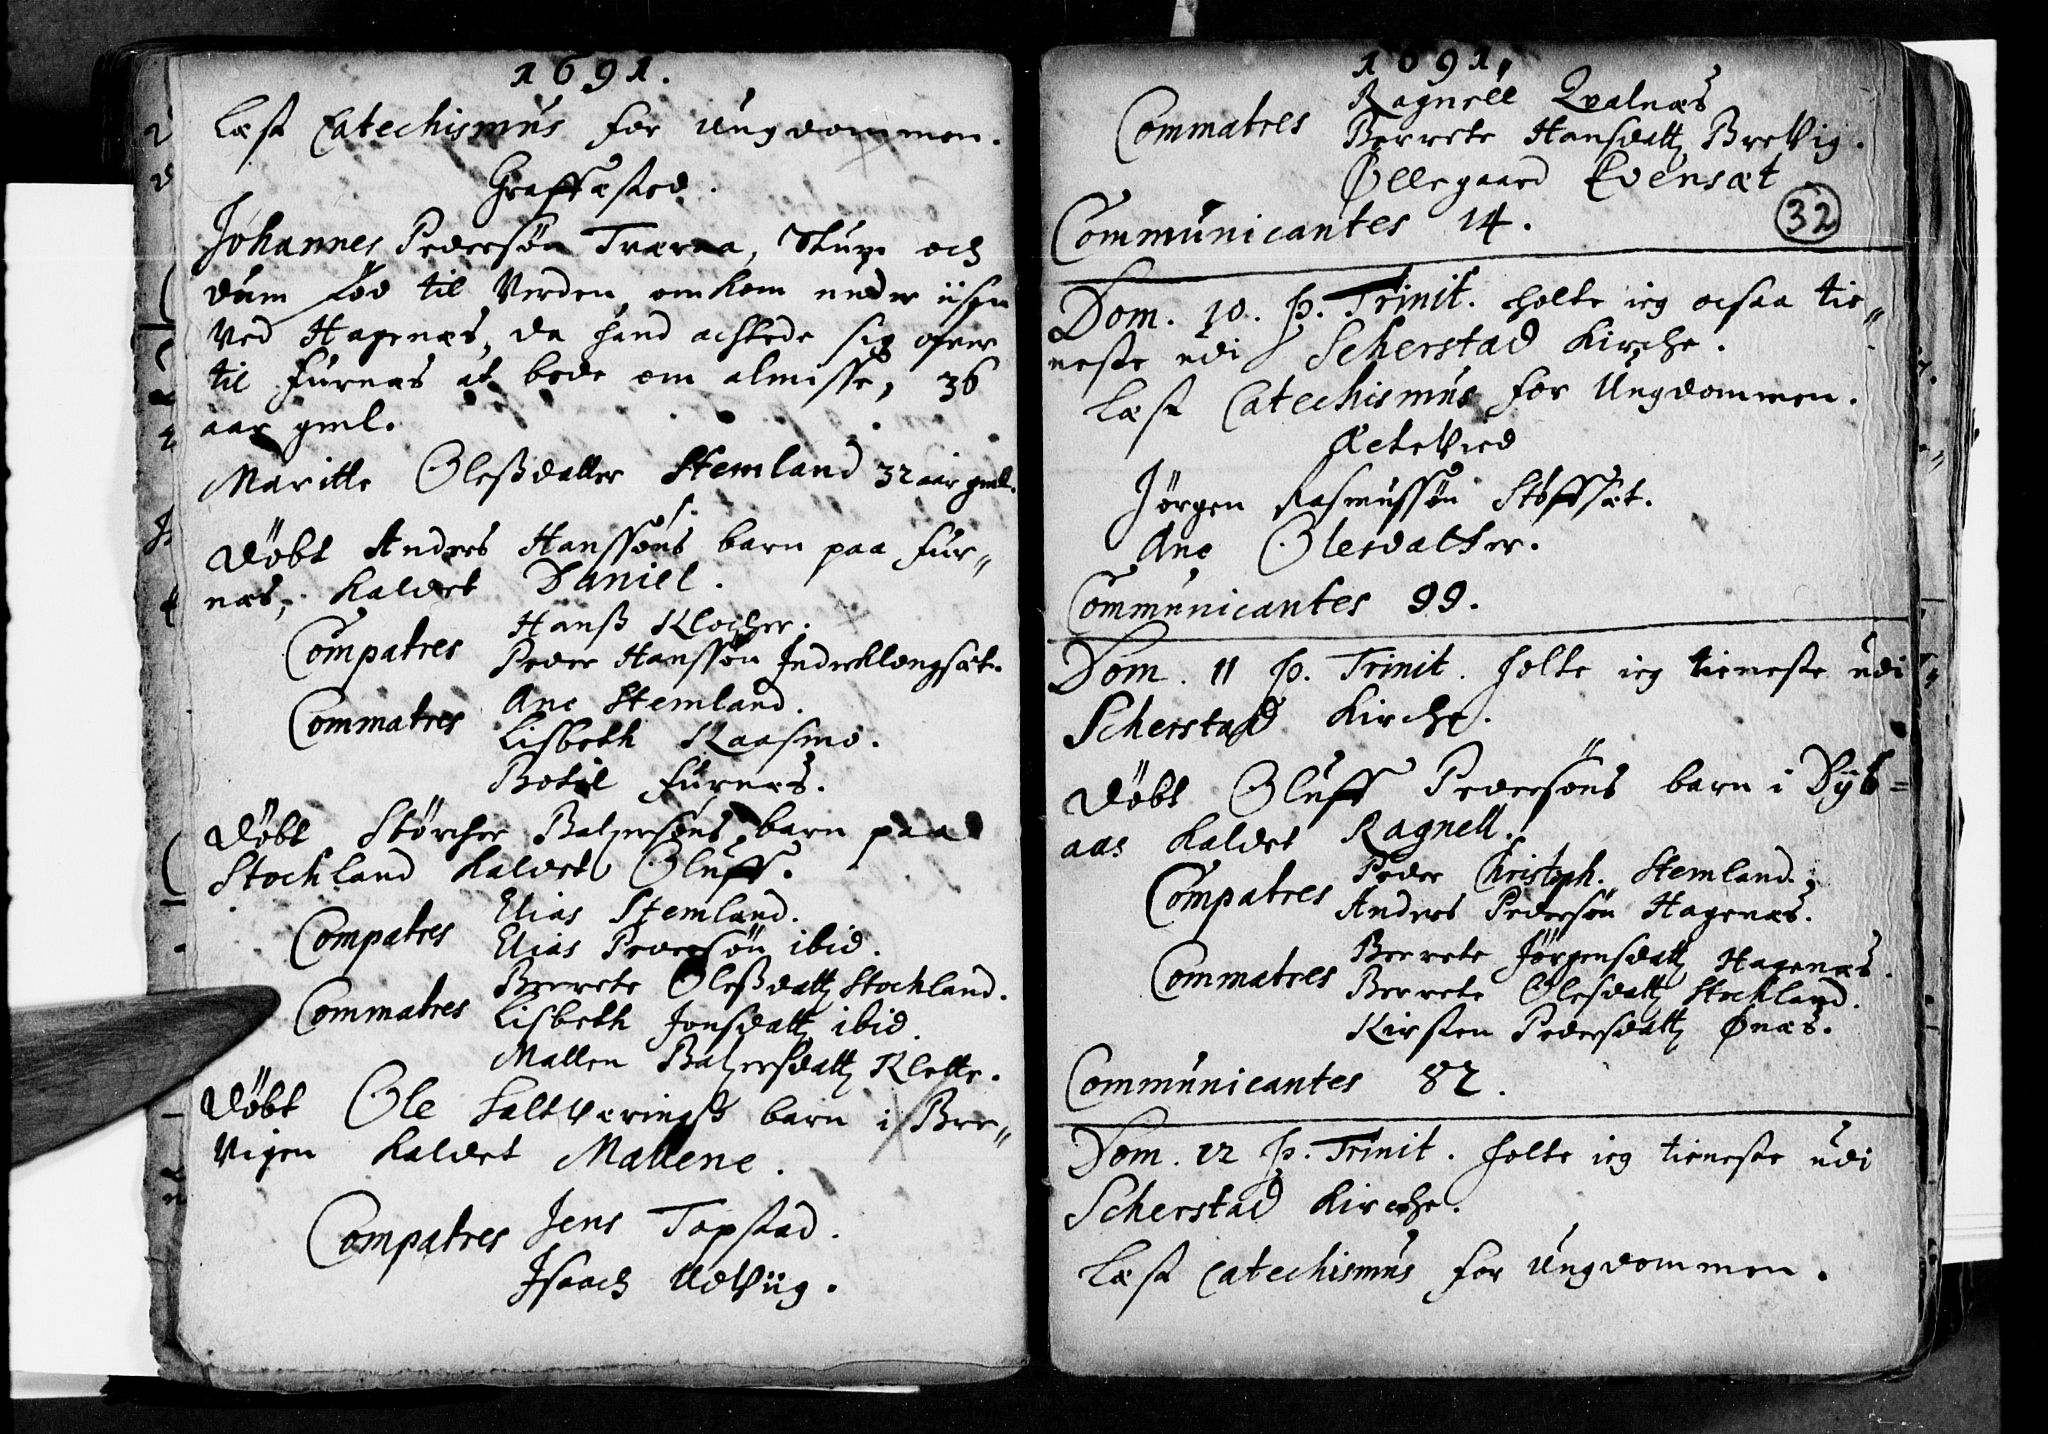 1691.
Læst Catechismus for Ungdommen.
Graffæsted.
Johannes Pedersøn Træræa, Stum och
dum fød til Verden, omkom under iisen
ved Hagenæs, da hand achtede sig ofver
til Furnæs at bede om almisse, 36
aar gml.
Maritte Oleßdatter Stemland 32 aar gml.
Døbt Anders Hanssøns barn paa Fur„
næs, kaldet Daniel.
Compatres
Hanß Klocher.
Peder Hanssøn Inderklengsæt.
Commatres
Ane Stemland.
Lisbeth Kaasmo.
Botil Furnæs.
Døbt Størcher Balzersøns barn paa
Stochland kaldet Oluff.
Compatres
Elias Stemland.
Elias Pedersøn ibid.
Commatres
Berrete Oleßdatt Stochland.
Lisbeth Jonsdatt ibid.
Mallen Balzersdatt Klette.
Døbt Ole Saltværingß barn i Bre„
vigen kaldet Mallene.
Compatres
Jens Topstad.
Isaach Udviig.
1691.
Commatres
Ragnell Qvalnæs
Berrete Hansdatt Brevig.
Øllegaard Evensæt
32
Communicantes 14.
Dom. 10. p. Trinit. holte ieg ocsaa tie„
neste udi Scherstad Kirche.
Læst Catechismus for Ungdommen.
Æctevied
Jørgen Rasmussøn Støffsæt.
Ane Olesdatter.
Communicantes 99.
Dom. 11 p. Trinit. holte ieg tieneste udi
Scherstad Kirche.
Døbt Oluff Pedersøns barn i Dyb=
aas kaldet Ragnell.
Compatres
Peder Christoph. Stemland.
Anders Pedersøn Hagenæs.
Commatres
Berrete Jørgensdatt Hagenæs.
Berrete Olesdatt Stochland.
Kirsten Pedersdatt Ønæs.
Communicantes 82.
Dom. 12 p. Trinit. holte ieg tieneste udi
Scherstad Kirche.
Læst Catechismus for Ungdommen.